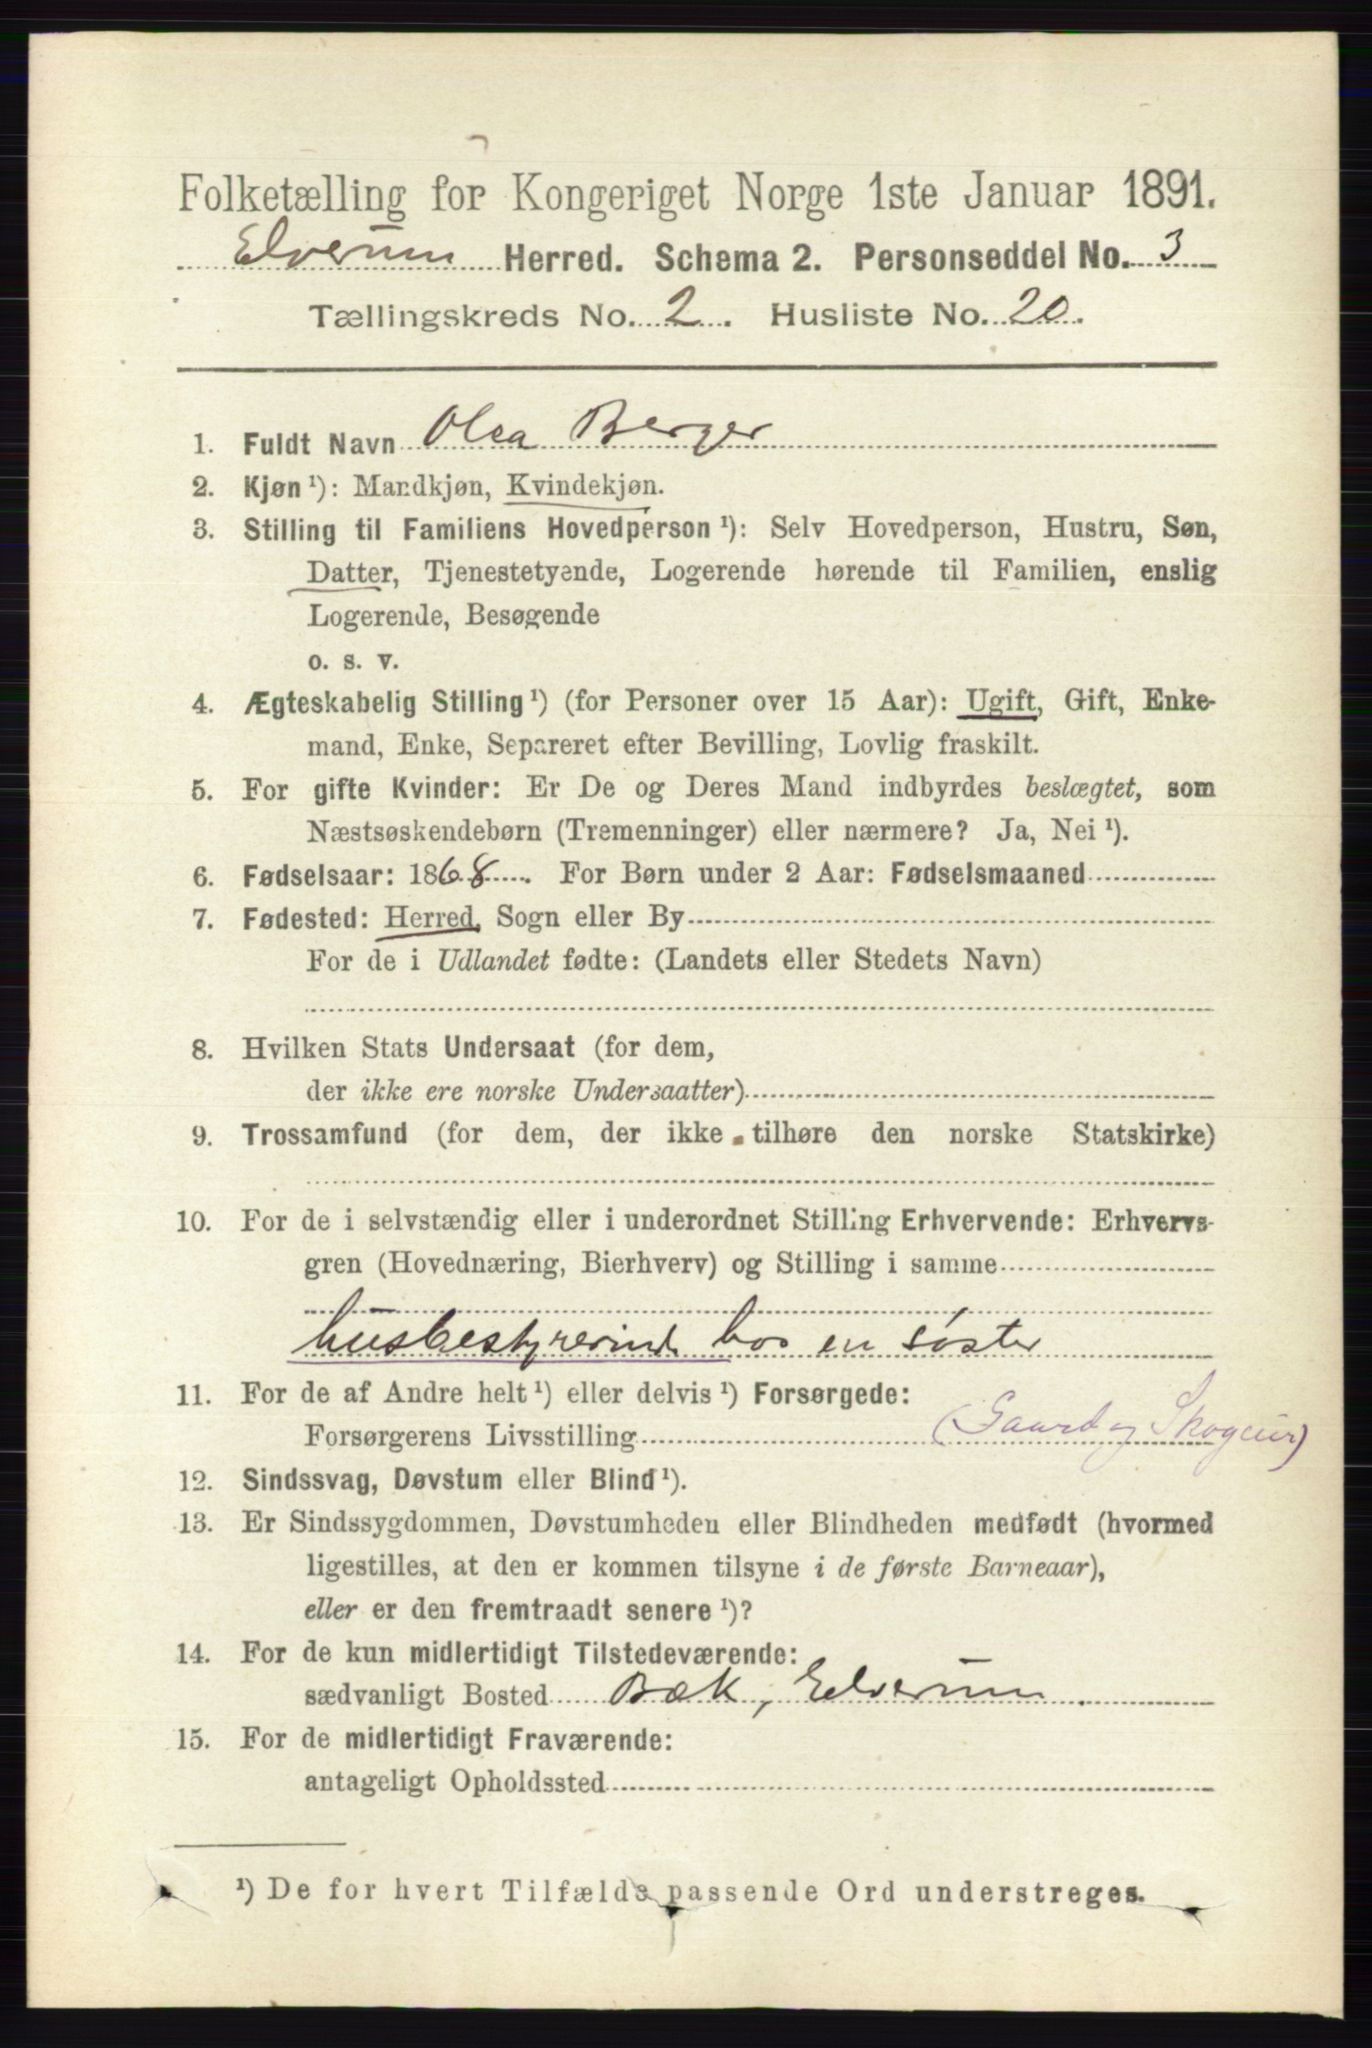 Folketælling for Kongeriget Norge 1ste Januar 1891.
Elverum Herred. Schema 2. Personseddel No. 3
Tællingskreds No. 2. Husliste No. 20.
1. Fuldt Navn Olea Berger
2. Kjøn ¹): Mandkjøn, Kvindekjøn.
3. Stilling til Familiens Hovedperson ¹): Selv Hovedperson, Hustru, Søn,
Datter, Tjenestetyende, Logerende hørende til Familien, enslig
Logerende, Besøgende
o. s. v.
4. Ægteskabelig Stilling ¹) (for Personer over 15 Aar): Ugift, Gift, Enke-
mand, Enke, Separeret efter Bevilling, Lovlig fraskilt.
5. For gifte Kvinder: Er De og Deres Mand indbyrdes beslægtet, som
Næstsøskendebørn (Tremenninger) eller nærmere? Ja, Nei ¹).
6. Fødselsaar: 1868. For Børn under 2 Aar: Fødselsmaaned
7. Fødested: Herred, Sogn eller By
For de i Udlandet fødte: (Landets eller Stedets Navn)
8. Hvilken Stats Undersaat (for dem,
der ikke ere norske Undersaatter)
9. Trossamfund (for dem, der ikke tilhøre den norske Statskirke)
10. For de i selvstændig eller i underordnet Stilling Erhvervende: Erhvervs-
gren (Hovednæring, Bierhverv) og Stilling i samme
husbestyrerinde hos en søster
11. For de af Andre helt ¹) eller delvis ¹) Forsørgede:
Forsørgerens Livsstilling (Gaard og Skogeier)
12. Sindssvag, Døvstum eller Blind ¹).
13. Er Sindssygdommen, Døvstumheden eller Blindheden medfødt (hvormed
ligestilles, at den er kommen tilsyne i de første Barneaar),
eller er den fremtraadt senere ¹)?
14. For de kun midlertidigt Tilstedeværende:
sædvanligt Bosted Bæk, Elverum.
15. For de midlertidigt Fraværende:
antageligt Opholdssted
¹) De for hvert Tilfælde passende Ord understreges.